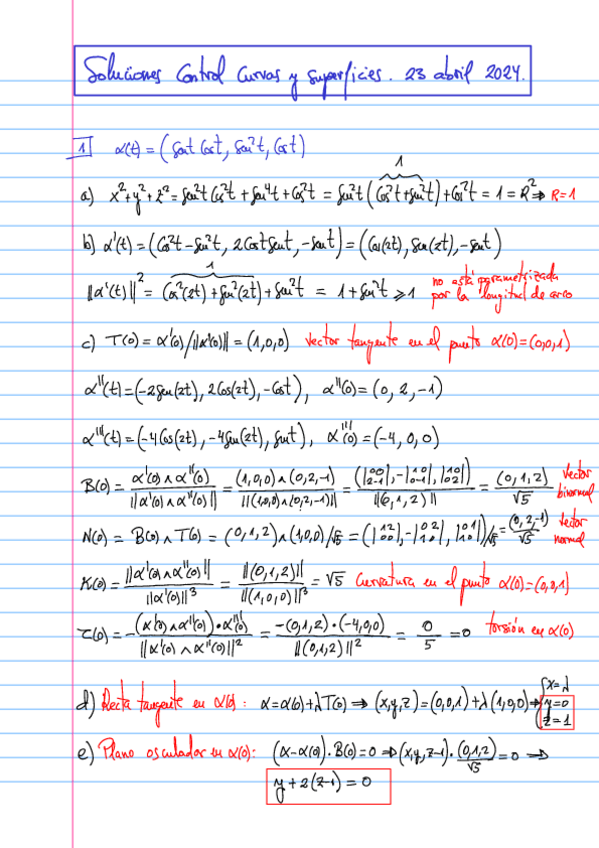 Soluciones Control Curvas y superficies. 23 abril 2024.
1 α(t) = (Sent Cost, Sen²t, Cost)
1
a) x²+y²+z² = Sen²t Cos²t + Sen⁴t + Cos²t = Sen²t (Cos²t + Sen²t) + Cos²t = 1 = R² ⇒ R=1
b) α'(t) = (Cos²t - Sen²t, 2Cost Sent, -Sent) = (Cos(2t), Sen(2t), -Sent)
1
||α'(t)||² = Cos²(2t) + Sen²(2t) + Sen²t = 1 + Sen²t ≥ 1 no está parametrizada por la longitud de arco
c) T(0) = α'(0)/||α'(0)|| = (1,0,0) vector tangente en el punto α(0)=(0,0,1)
α''(t) = (-2Sen(2t), 2Cos(2t), -Cost), α''(0) = (0, 2, -1)
α'''(t) = (-4Cos(2t), -4Sen(2t), Sent), α'''(0) = (-4, 0, 0)
B(0) = α'(0)∧α''(0) / ||α'(0)∧α''(0)|| = (1,0,0)∧(0,2,-1) / ||(1,0,0)∧(0,2,-1)|| = (|0 0; 2 -1|, -|1 0; 0 -1|, |1 0; 0 2|) / ||(0,1,2)|| = (0,1,2)/√5 vector binormal
N(0) = B(0)∧T(0) = (0,1,2)∧(1,0,0)/√5 = (|1 2; 0 0|, -|0 2; 1 0|, |0 1; 1 0|)/√5 = (0,2,-1)/√5 vector normal
K(0) = ||α'(0)∧α''(0)|| / ||α'(0)||³ = ||(0,1,2)|| / ||(1,0,0)||³ = √5 Curvatura en el punto α(0)=(0,0,1)
τ(0) = -(α'(0)∧α''(0))·α'''(0) / ||α'(0)∧α''(0)||² = -(0,1,2)·(-4,0,0) / ||(0,1,2)||² = 0/5 = 0 torsión en α(0)
d) Recta tangente en α(0): α = α(0) + λT(0) ⇒ (x,y,z) = (0,0,1) + λ(1,0,0) ⇒ {x=λ y=0 z=1
e) Plano osculador en α(0): (α-α(0))·B(0) = 0 ⇒ (x,y,z-1)·(0,1,2)/√5 = 0 ⇒
y + 2(z-1) = 0